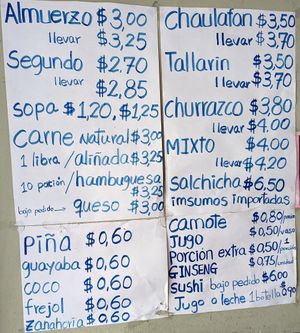 Almuerzo $3,00
llevar $3,25
Segundo $2.70
llevar $2,85
sopa $1,20, $1,25
Carne Natural $3,00
1 libra /aliñada $3,25
10 poción /hamburguesa
$3,25
bajo pedido → queso $3,00
Piña $0,60
guayaba $0,60
coco $0,60
frejol $0,60
Zanahoria $0,60
Chaulafan $3,50
llevar $3,70
Tallarin $3,50
llevar $3,70
Churrazco $3,80
llevar $4.00
MIXto $4.00
llevar $4,20
Salchicha $6,50
imsumos importadas
camote $0,80
Jugo $0,50/vaso
Porción extra $0,50/1
GINSENG $0,75/unidad
sushi bajo pedido $6,00
Jugo o leche 1 botella $0,90